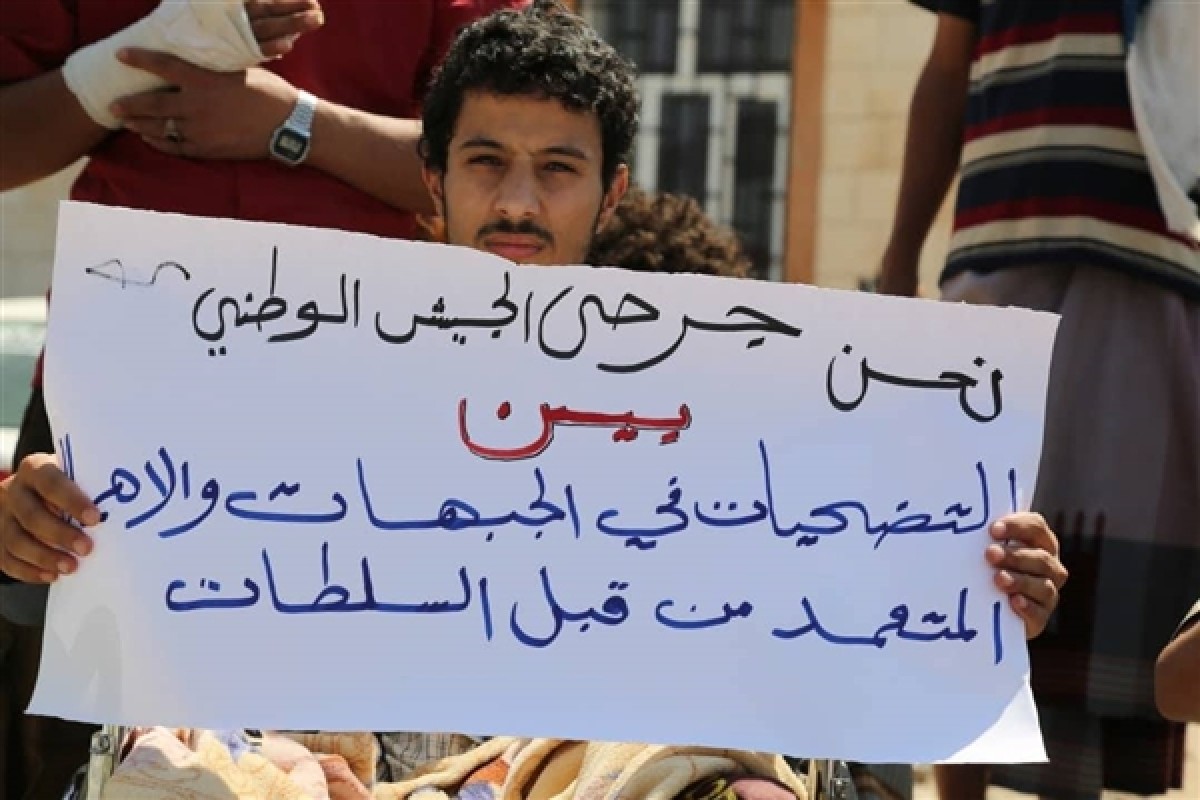 نحن جرحى الجيش الوطني
بين
التضحيات في الجبهات والاهمال
المتعمد من قبل السلطات